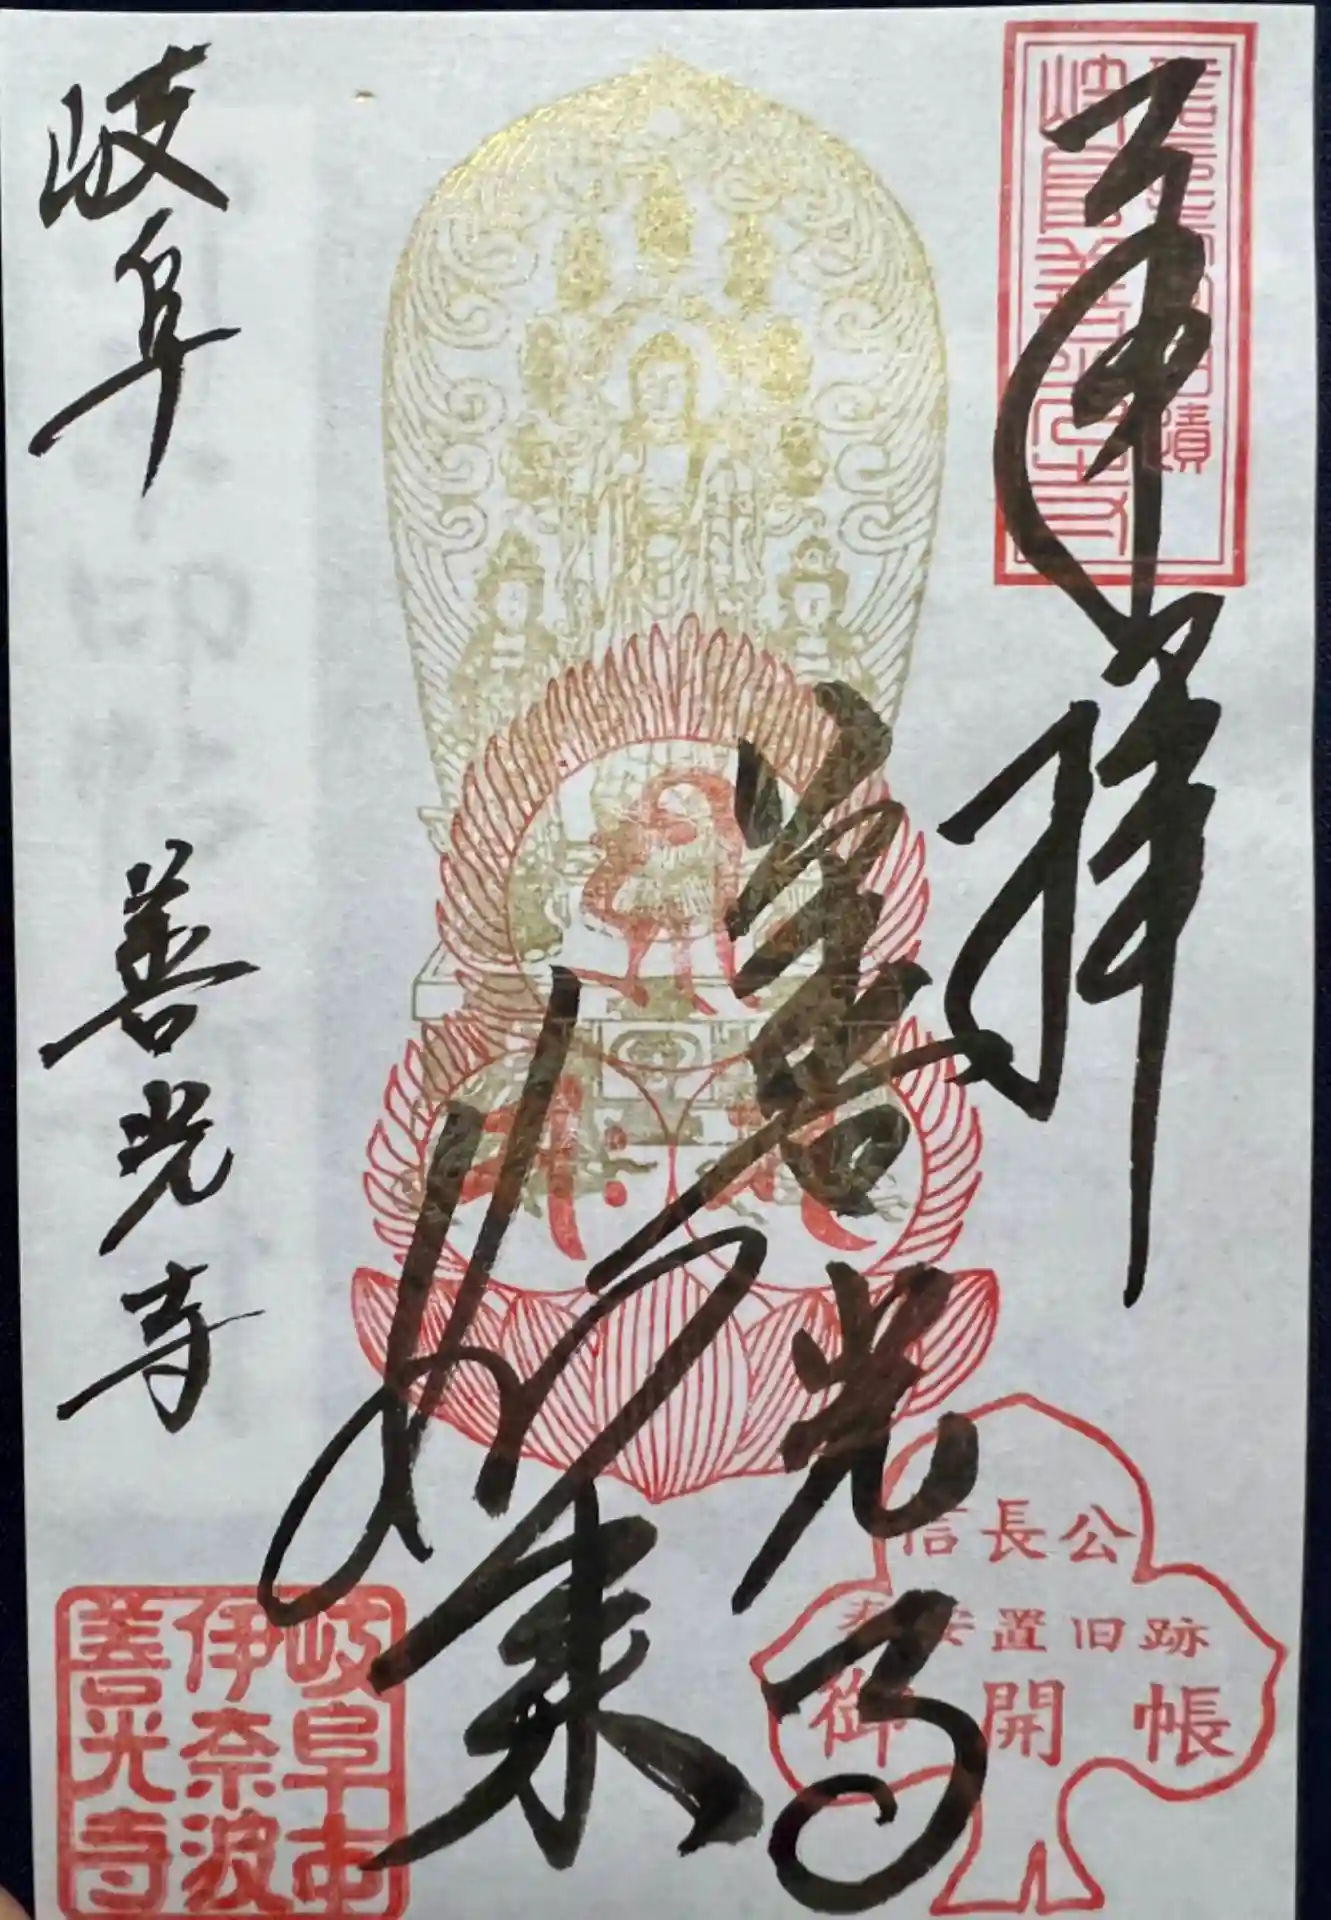 奉拝
善光寺
如来
岐阜 善光寺
信長公
奉安置旧跡
御開帳
岐阜市
伊奈波
善光寺